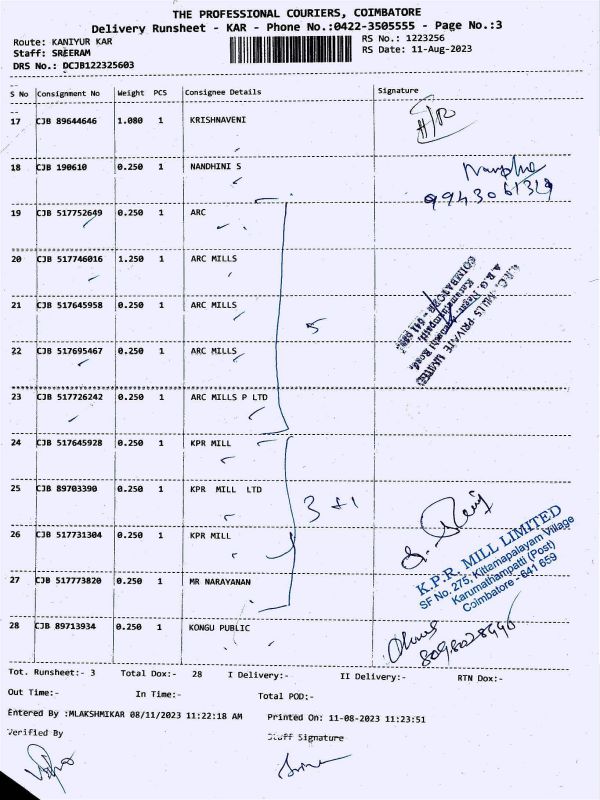 THE PROFESSIONAL COURIERS, COIMBATORE
Delivery Runsheet - KAR - Phone No.:0422-3505555 - Page No.:3
Route: KANIYUR KAR
RS No.: 1223256
Staff: SREERAM
RS Date: 11-Aug-2023
DRS No.: DCJB122325603
S No Consignment No Weight PCS Consignee Details Signature
17 CJB 89644646 1.080 1 KRISHNAVENI
H/R
18 CJB 190610 0.250 1 NANDHINI S
19 CJB 517752649 0.250 1 ARC
20 CJB 517746016 1.250 1 ARC MILLS
21 CJB 517645958 0.250 1 ARC MILLS
5
22 CJB 517695467 0.250 1 ARC MILLS
23 CJB 517726242 0.250 1 ARC MILLS P LTD
24 CJB 517645928 0.250 1 KPR MILL
25 CJB 89703390 0.250 1 KPR MILL LTD
3 +1
26 CJB 517731304 0.250 1 KPR MILL
K.P.R. MILL LIMITED
SF No. 275, Kittampalayam Village
Karumathampatti (Post)
Coimbatore - 641 659
27 CJB 517773820 0.250 1 MR NARAYANAN
28 CJB 89713934 0.250 1 KONGU PUBLIC
Tot. Runsheet:- 3 Total Dox:- 28 I Delivery:- II Delivery:- RTN Dox:-
Out Time:- In Time:- Total POD:-
Entered By :MLAKSHMIKAR 08/11/2023 11:22:18 AM Printed On: 11-08-2023 11:23:51
Verified By Staff Signature